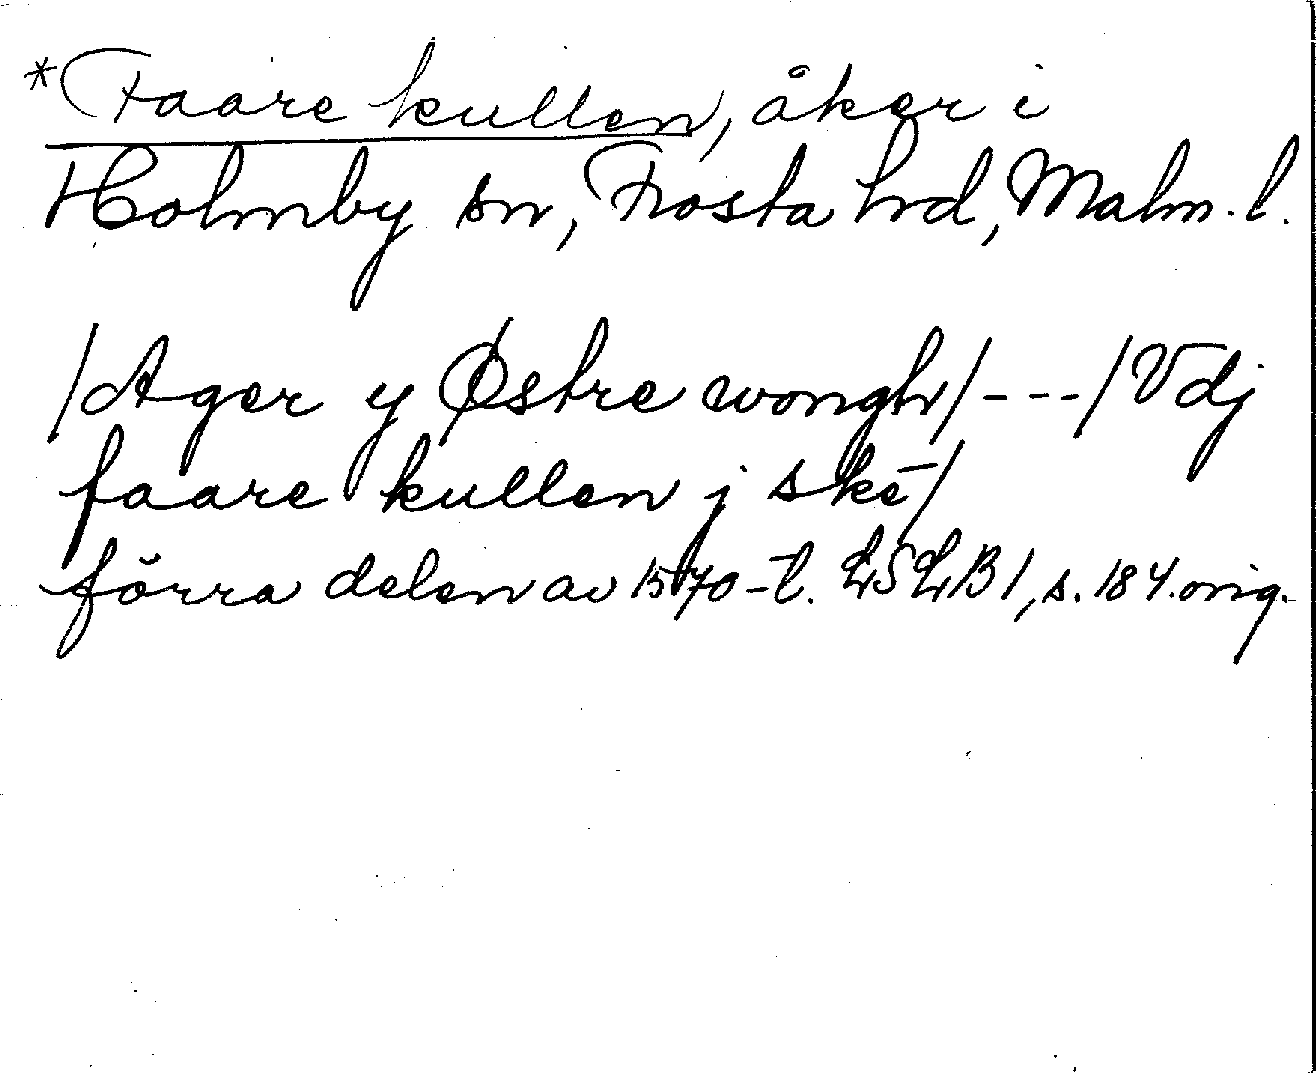 *Faare kullen, åker i
Holmby sn, Frosta hd, Malm. l.
/Ager y Østre wongh/---/Vdj
faare kullen j skē/
förra delen av 1570-t. LSLB1, s. 184. orig.